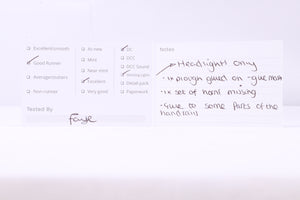 Excellent/unsorts
Good Runner
Average/outters
Non-runner
As new
Mint
Near mint
Excellent
Very good
DC
DCC
DCC Sound
Analog
Detail pack
Paperwork
Tested By
Faye
Notes
Headlight only
- 1x plough glued on - glue mark
- 1x set of horns missing
- Glue to some parts of the
handrails